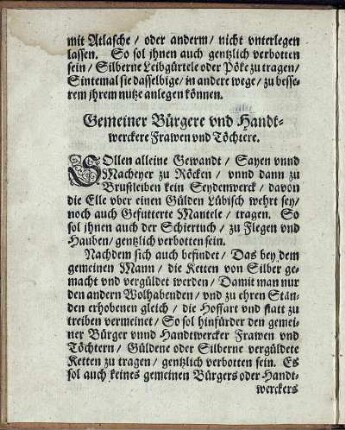 mit Atlasche / oder anderm / nicht vnterlegen
lassen. So sol jhnen auch gentzlich verbotten
sein / Silberne Leibgürtele oder Pöke zu tragen /
Sintemal sie dasselbige / in andere wege / zu besse-
rem jhrem nutze anlegen können.
Gemeiner Bürgere vnd Handt-
werckere Frawen vnd Töchtere.
SOllen alleine Gewandt / Sayen vnnd
Macheyer zu Röcken / vnnd dann zu
Brustleiben kein Seydenwerck / davon
die Elle vber einen Gülden Lübisch wehrt sey /
noch auch Gefutterte Mantele / tragen. So
sol jhnen auch der Schiertuch / zu Flegen vnd
Hauben / gentzlich verbotten sein.
Nachdem sich auch befindet / Das bey dem
gemeinen Mann / die Ketten von Silber ge-
macht vnd vergüldet werden / Damit man nur
den andern Wolhabenden / vnd zu ehren Stän-
den erhobenen gleich / die Hoffart vnd statt zu
treiben vermeinet / So sol hinfürder den gemei-
ner Bürger vnnd Handtwercker Frawen vnd
Töchtern / Güldene oder Silberne vergüldete
Ketten zu tragen / gentzlich verbotten sein. Es
sol auch keines gemeinen Bürgers oder Handt-
werckers